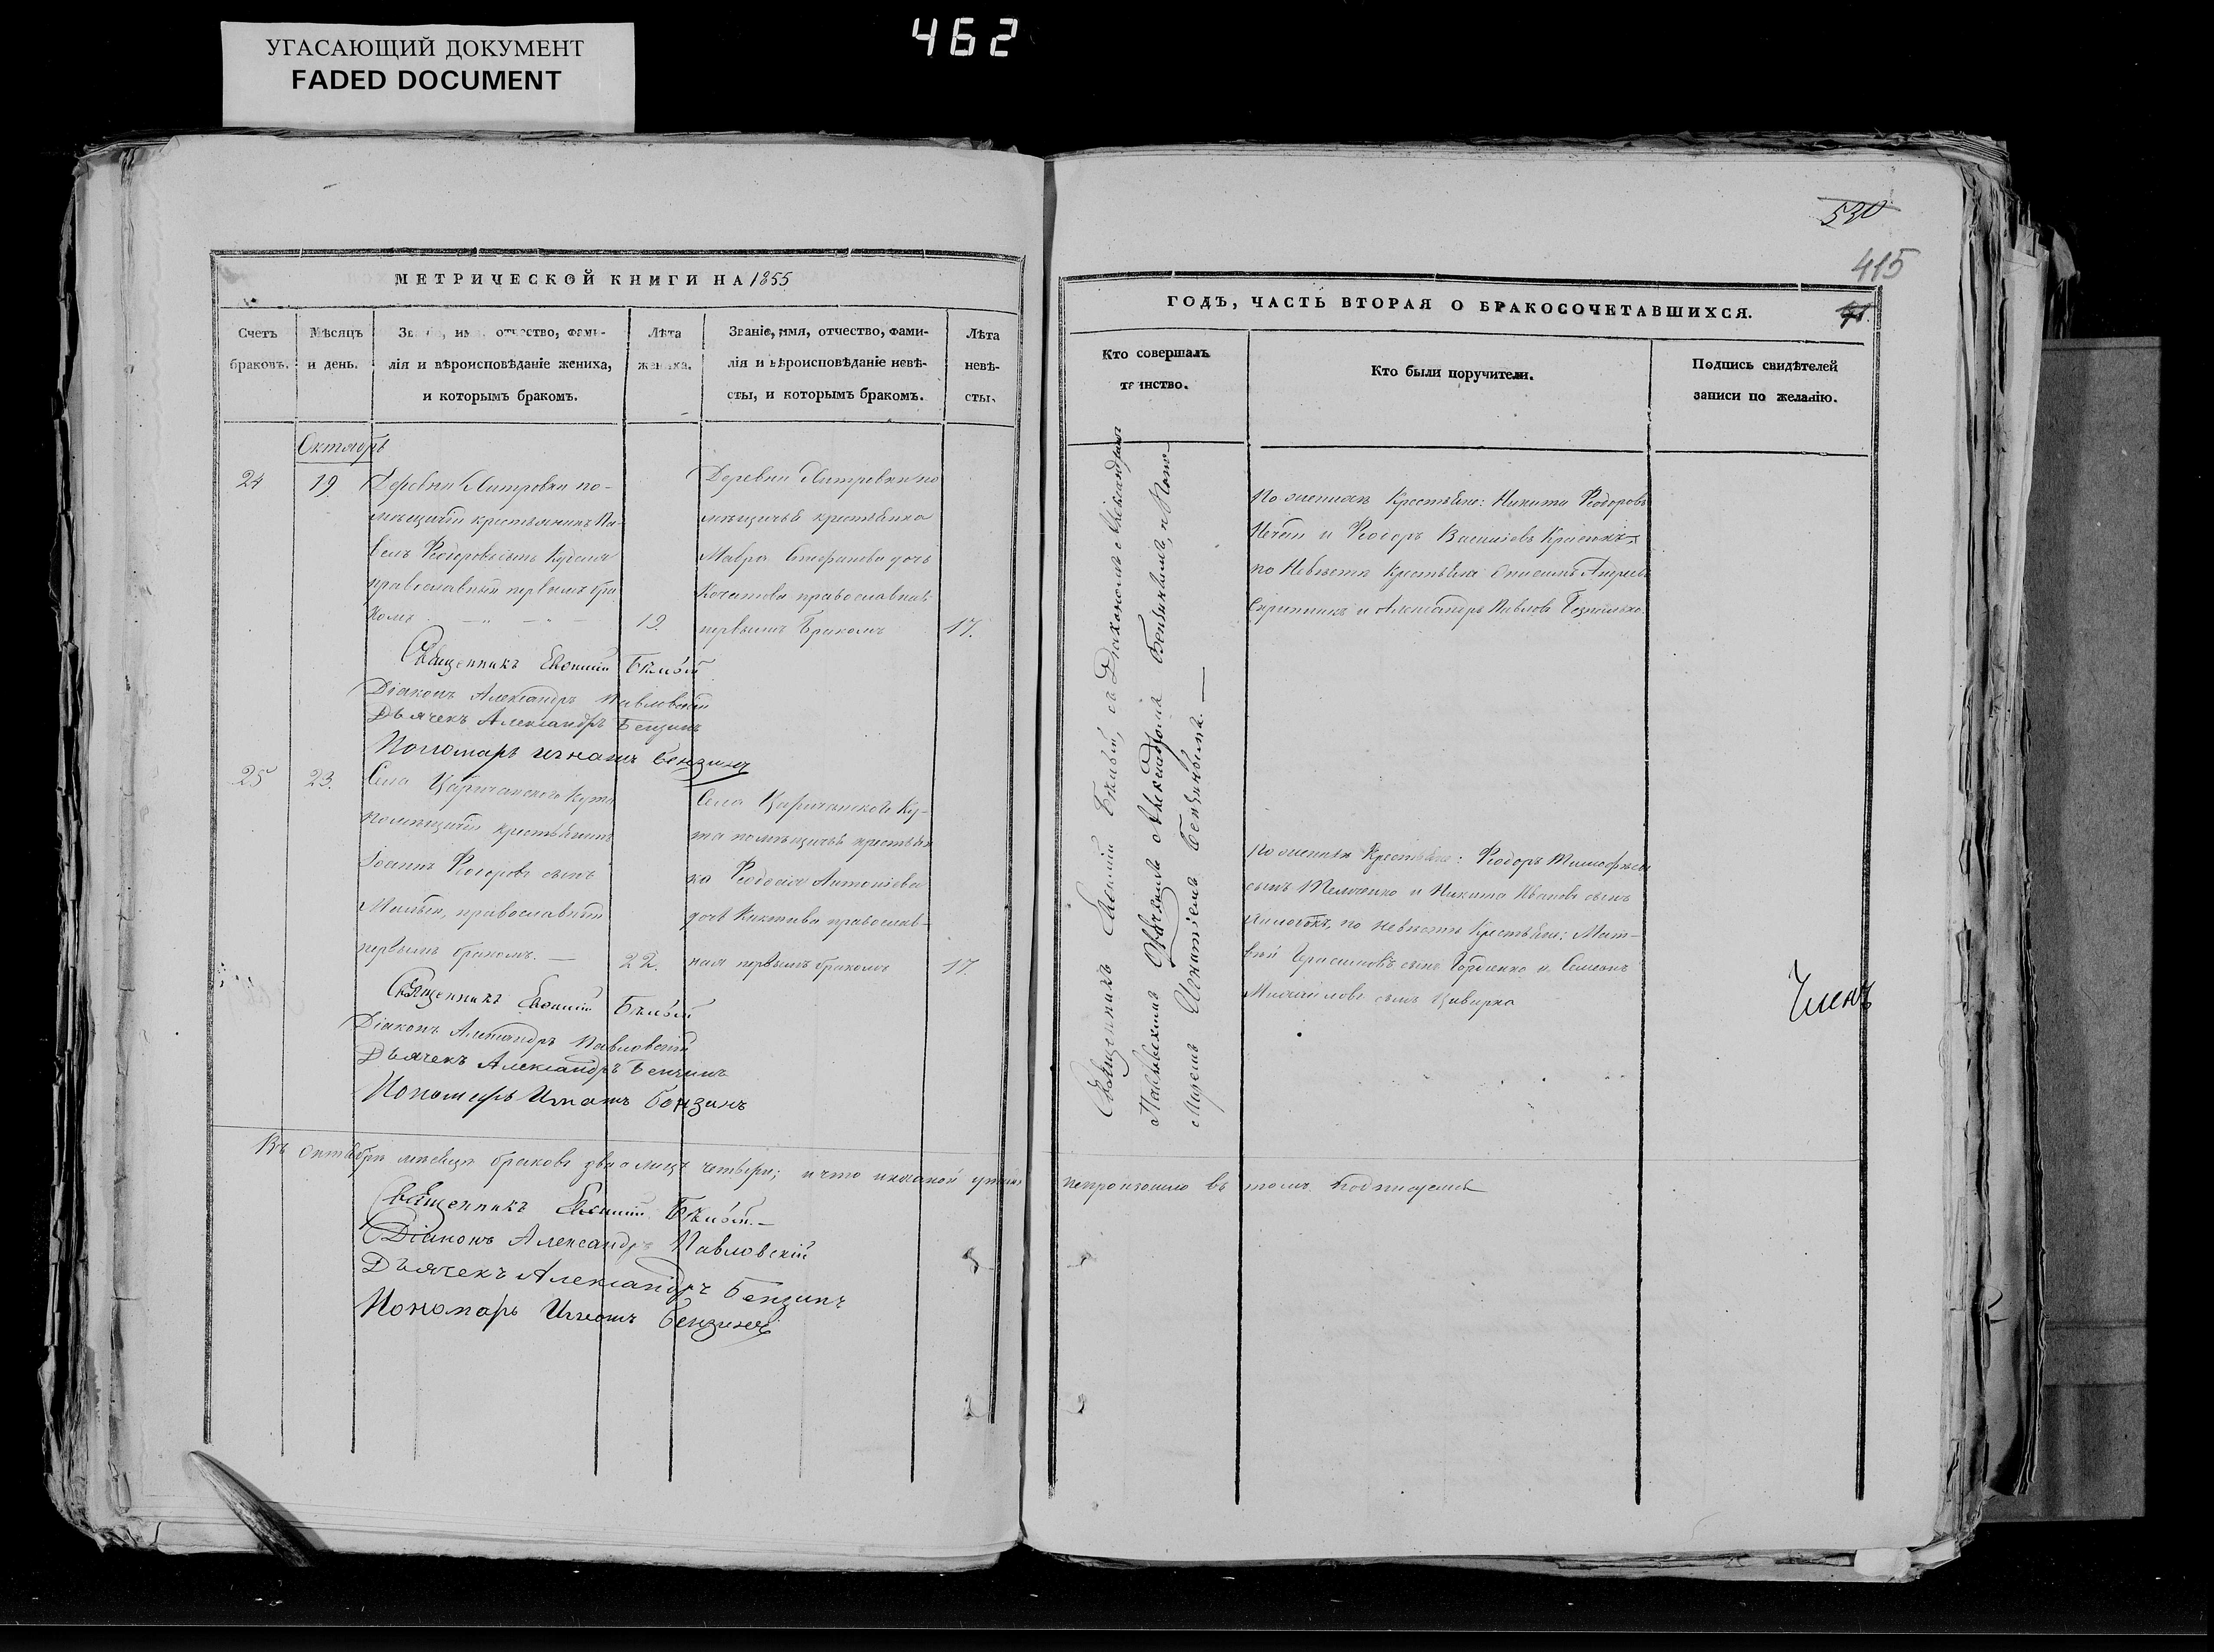 УГАСАЮЩИЙ ДОКУМЕНТ
FADED DOCUMENT
462
МЕТРИЧЕСКОЙ КНИГИ НА 1855
Счетъ браковъ.
Мѣсяцъ и день.
отчество, фами-
лія и вѣроисповѣданіе жениха,
и которымъ бракомъ.
Лѣта
жениха.
Званіе, имя, отчество, фами-
лія и вѣроисповѣданіе невѣ-
сты, и которымъ бракомъ.
Лѣта
невѣ-
сты.
Октябрь
24
19
Деревни Китровки по-
мѣщичій крестьянинъ Па-
велъ Ѳеодоровъ сынъ
православный первымъ бра
комъ
19.
Деревни Китровки по
мѣщичья крестьянка
Мавра Стефанова дочь
православная
первымъ бракомъ
17.
Священникъ Евѳимій Бѣлый
Діаконъ Александръ Павловскій
Дьячекъ Александръ Бензинъ
Пономарь Игнатъ Бензинъ
25
23.
Села Царичанского Кута
помѣщичій крестьянинъ
Іоаннъ Ѳеодоровъ сынъ
православный
первымъ бракомъ. —
22.
Села Царичанского Ку-
та помѣщичья крестьян
ка Ѳеодосія Антоніева
дочь православ-
ная первымъ бракомъ
17.
Священникъ Евѳимій Бѣлый
Діаконъ Александръ Павловскій
Дьячекъ Александръ Бензинъ
Пономарь Игнатъ Бензинъ
Въ октябрѣ мѣсяцѣ браковъ четыри; и что никакой
Священникъ Евѳимій Бѣлый. —
Діаконъ Александръ Павловскій
Дьячекъ Александръ Бензинъ
Пономарь Игнатъ Бензинъ
530
415
ГОДЪ, ЧАСТЬ ВТОРАЯ О БРАКОСОЧЕТАВШИХСЯ.
Кто совершалъ
таинство.
Кто были поручители.
Подпись свидѣтелей
записи по желанію.
Священникъ Евѳимій Бѣлый, съ Діакономъ Александромъ
Павловскимъ Дьячкомъ Александромъ Бензинымъ, и Поно-
маремъ Игнатіемъ Бензинымъ. —
По женихѣ Крестьяне: Никита Ѳеодоровъ
и Ѳеодоръ Василіевъ
по Невѣстѣ Крестьяне Онисимъ Андреевъ
Скрипникъ и Александръ Павловъ
По женихѣ Крестьяне: Ѳеодоръ Тимоѳѣевъ
сынъ и Никита Ивановъ сынъ
по невѣстѣ Крестьяне: Мат-
вѣй Герасимовъ сынъ Гордіенко и Семеонъ
Михаиловъ сынъ Цивирка
Членъ
непроизошло въ томъ подписуемся